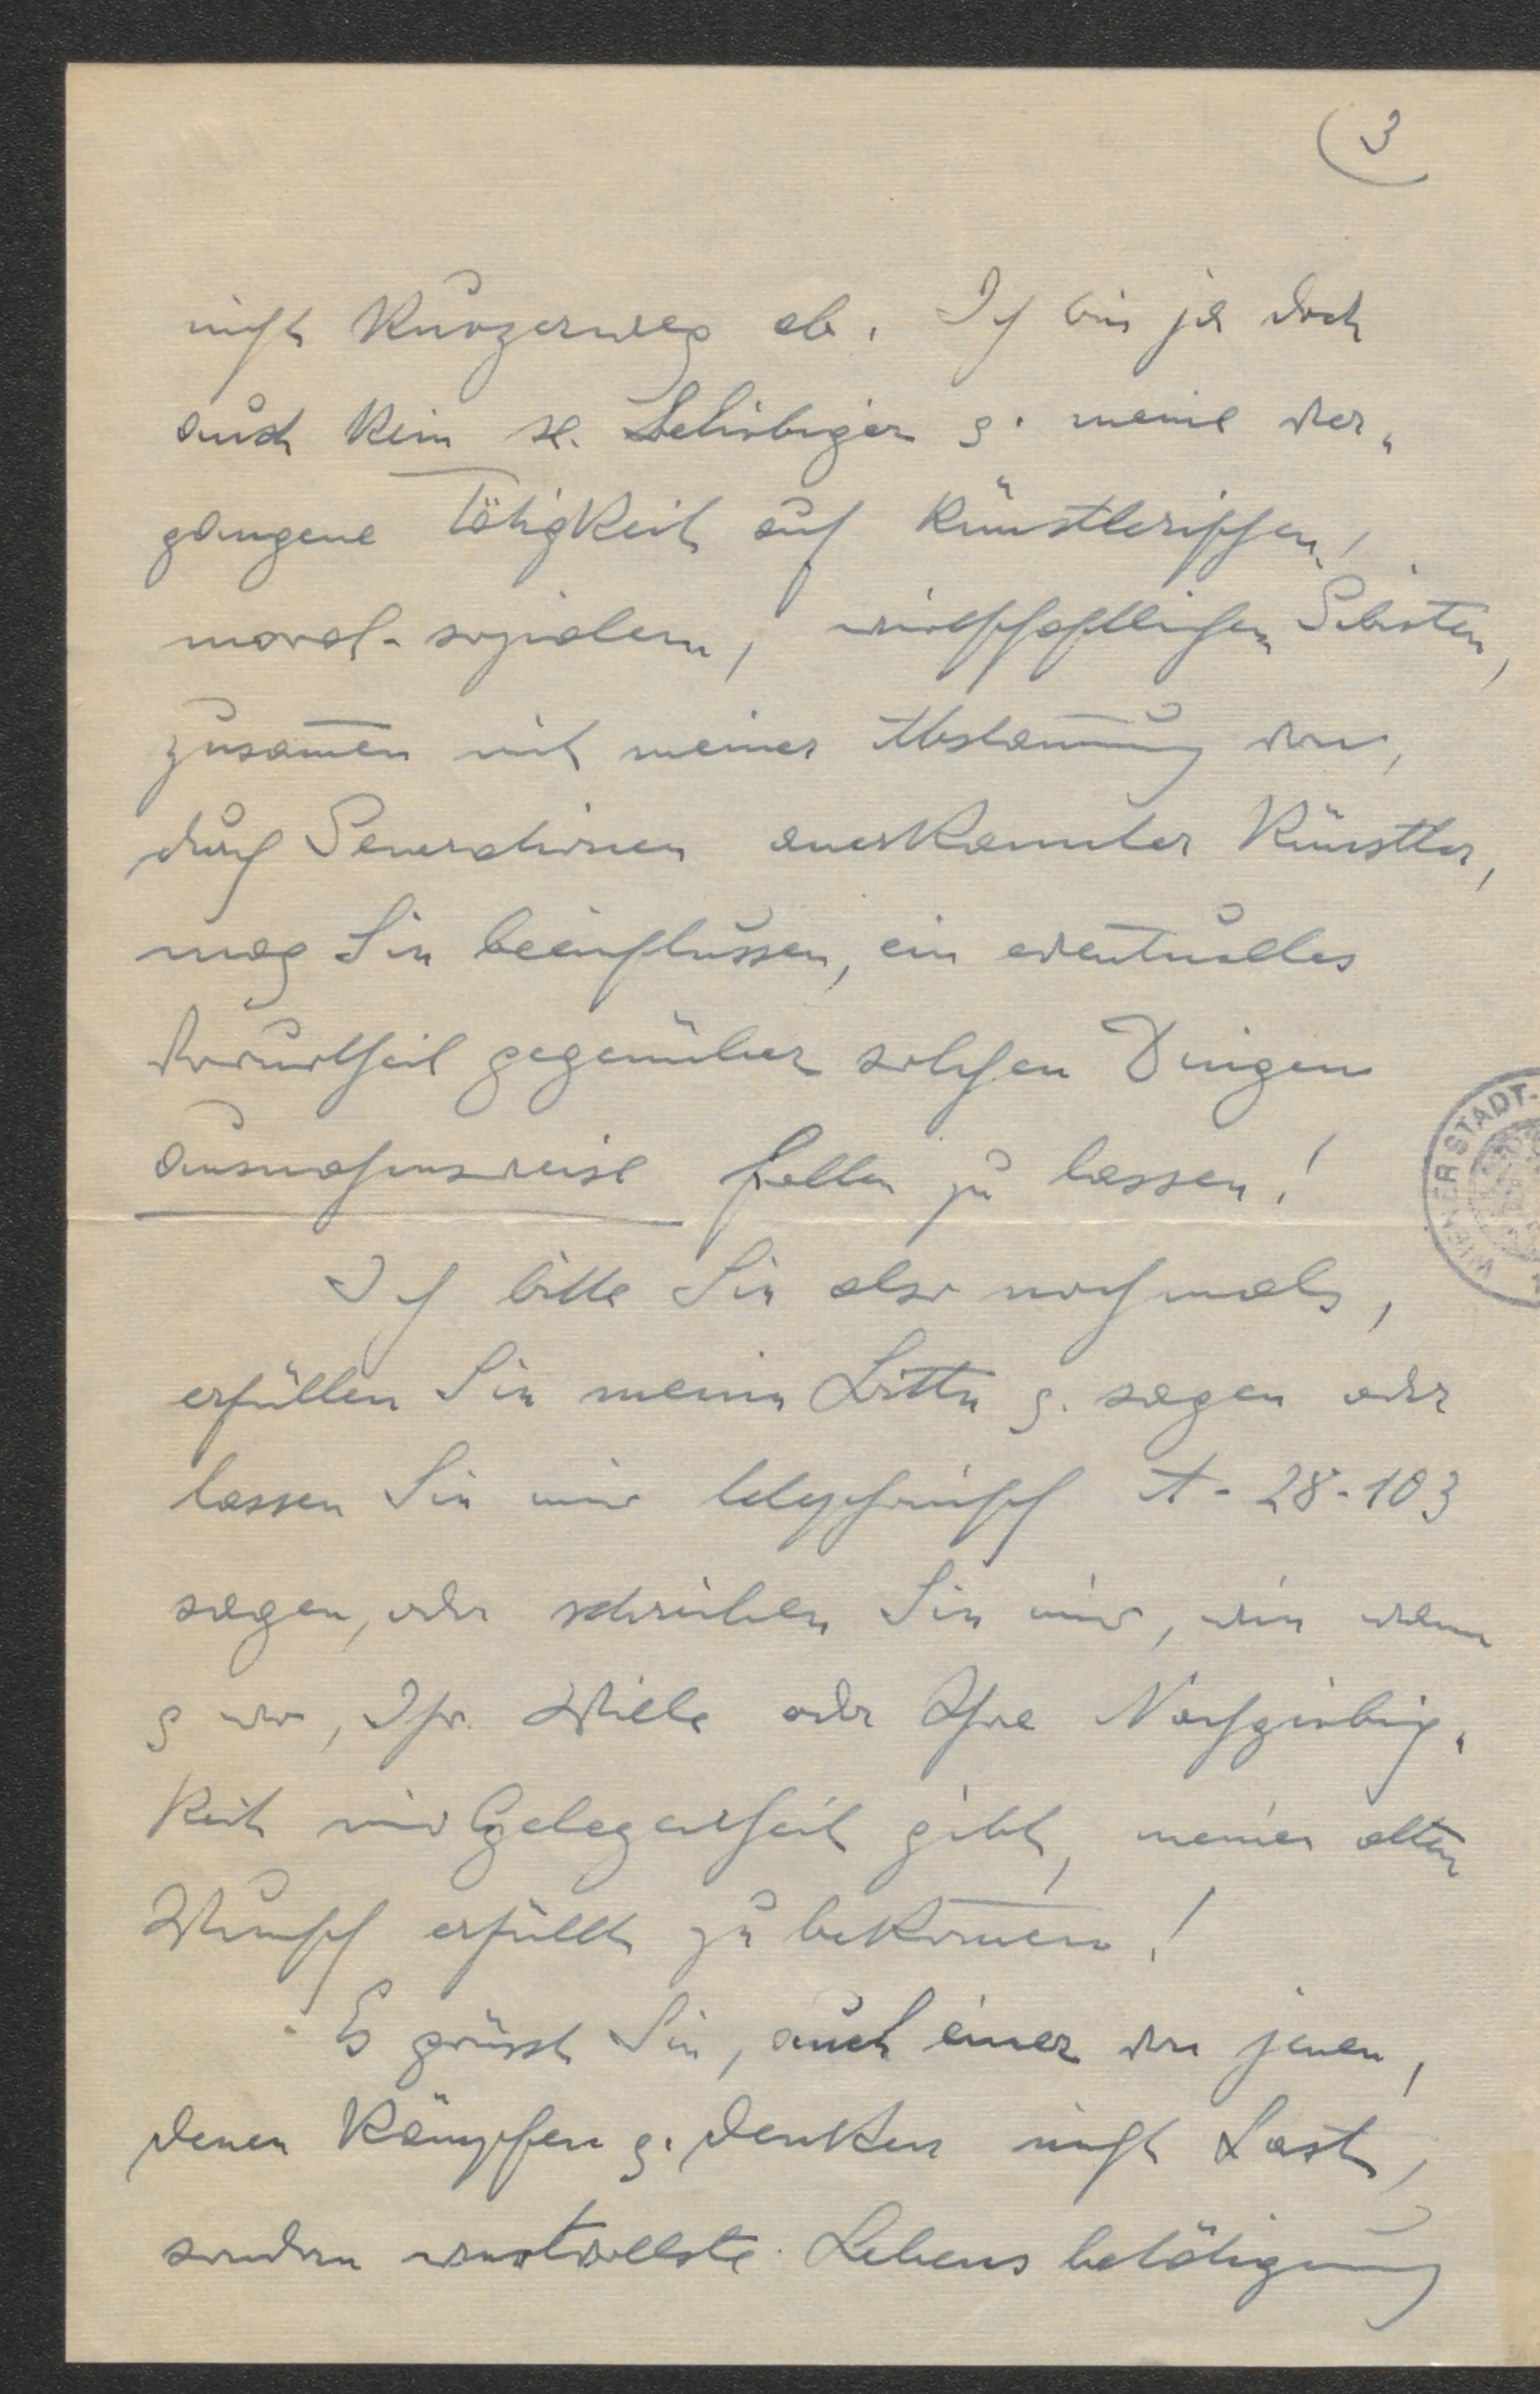 3
nicht kurzerweg ab. Ich bin ja doch
auch kein u. meine ver-
gangene Tätigkeit auf künstlerischen,
moral-sozialem, wirthschaftlichen Gebieten,
zusam̅en mit meiner Abstam̅ung von,
durch Generationen anerkannter Künstler,
mag Sie beeinflussen, ein eventuelles
Vorurtheil gegenüber solchen Dingen
ausnahmsweise fallen zu lassen!
Ich bitte Sie also nochmals,
erfüllen Sie meine Bitte u. sagen oder
lassen Sie mir telephonisch A-28-103
sagen, oder schreiben Sie mir, wie wann
u wo, Ihr Wille oder Ihre Nachgiebig-
keit mir Gelegenheit gibt, meinen alten
Wunsch erfüllt zu bekom̅en!
Es grüsst Sie, auch einer von jenen,
denen Kämpfen u. Denken nicht Last,
sondern wertvollste Lebensbetätigung
WIENER STADT-